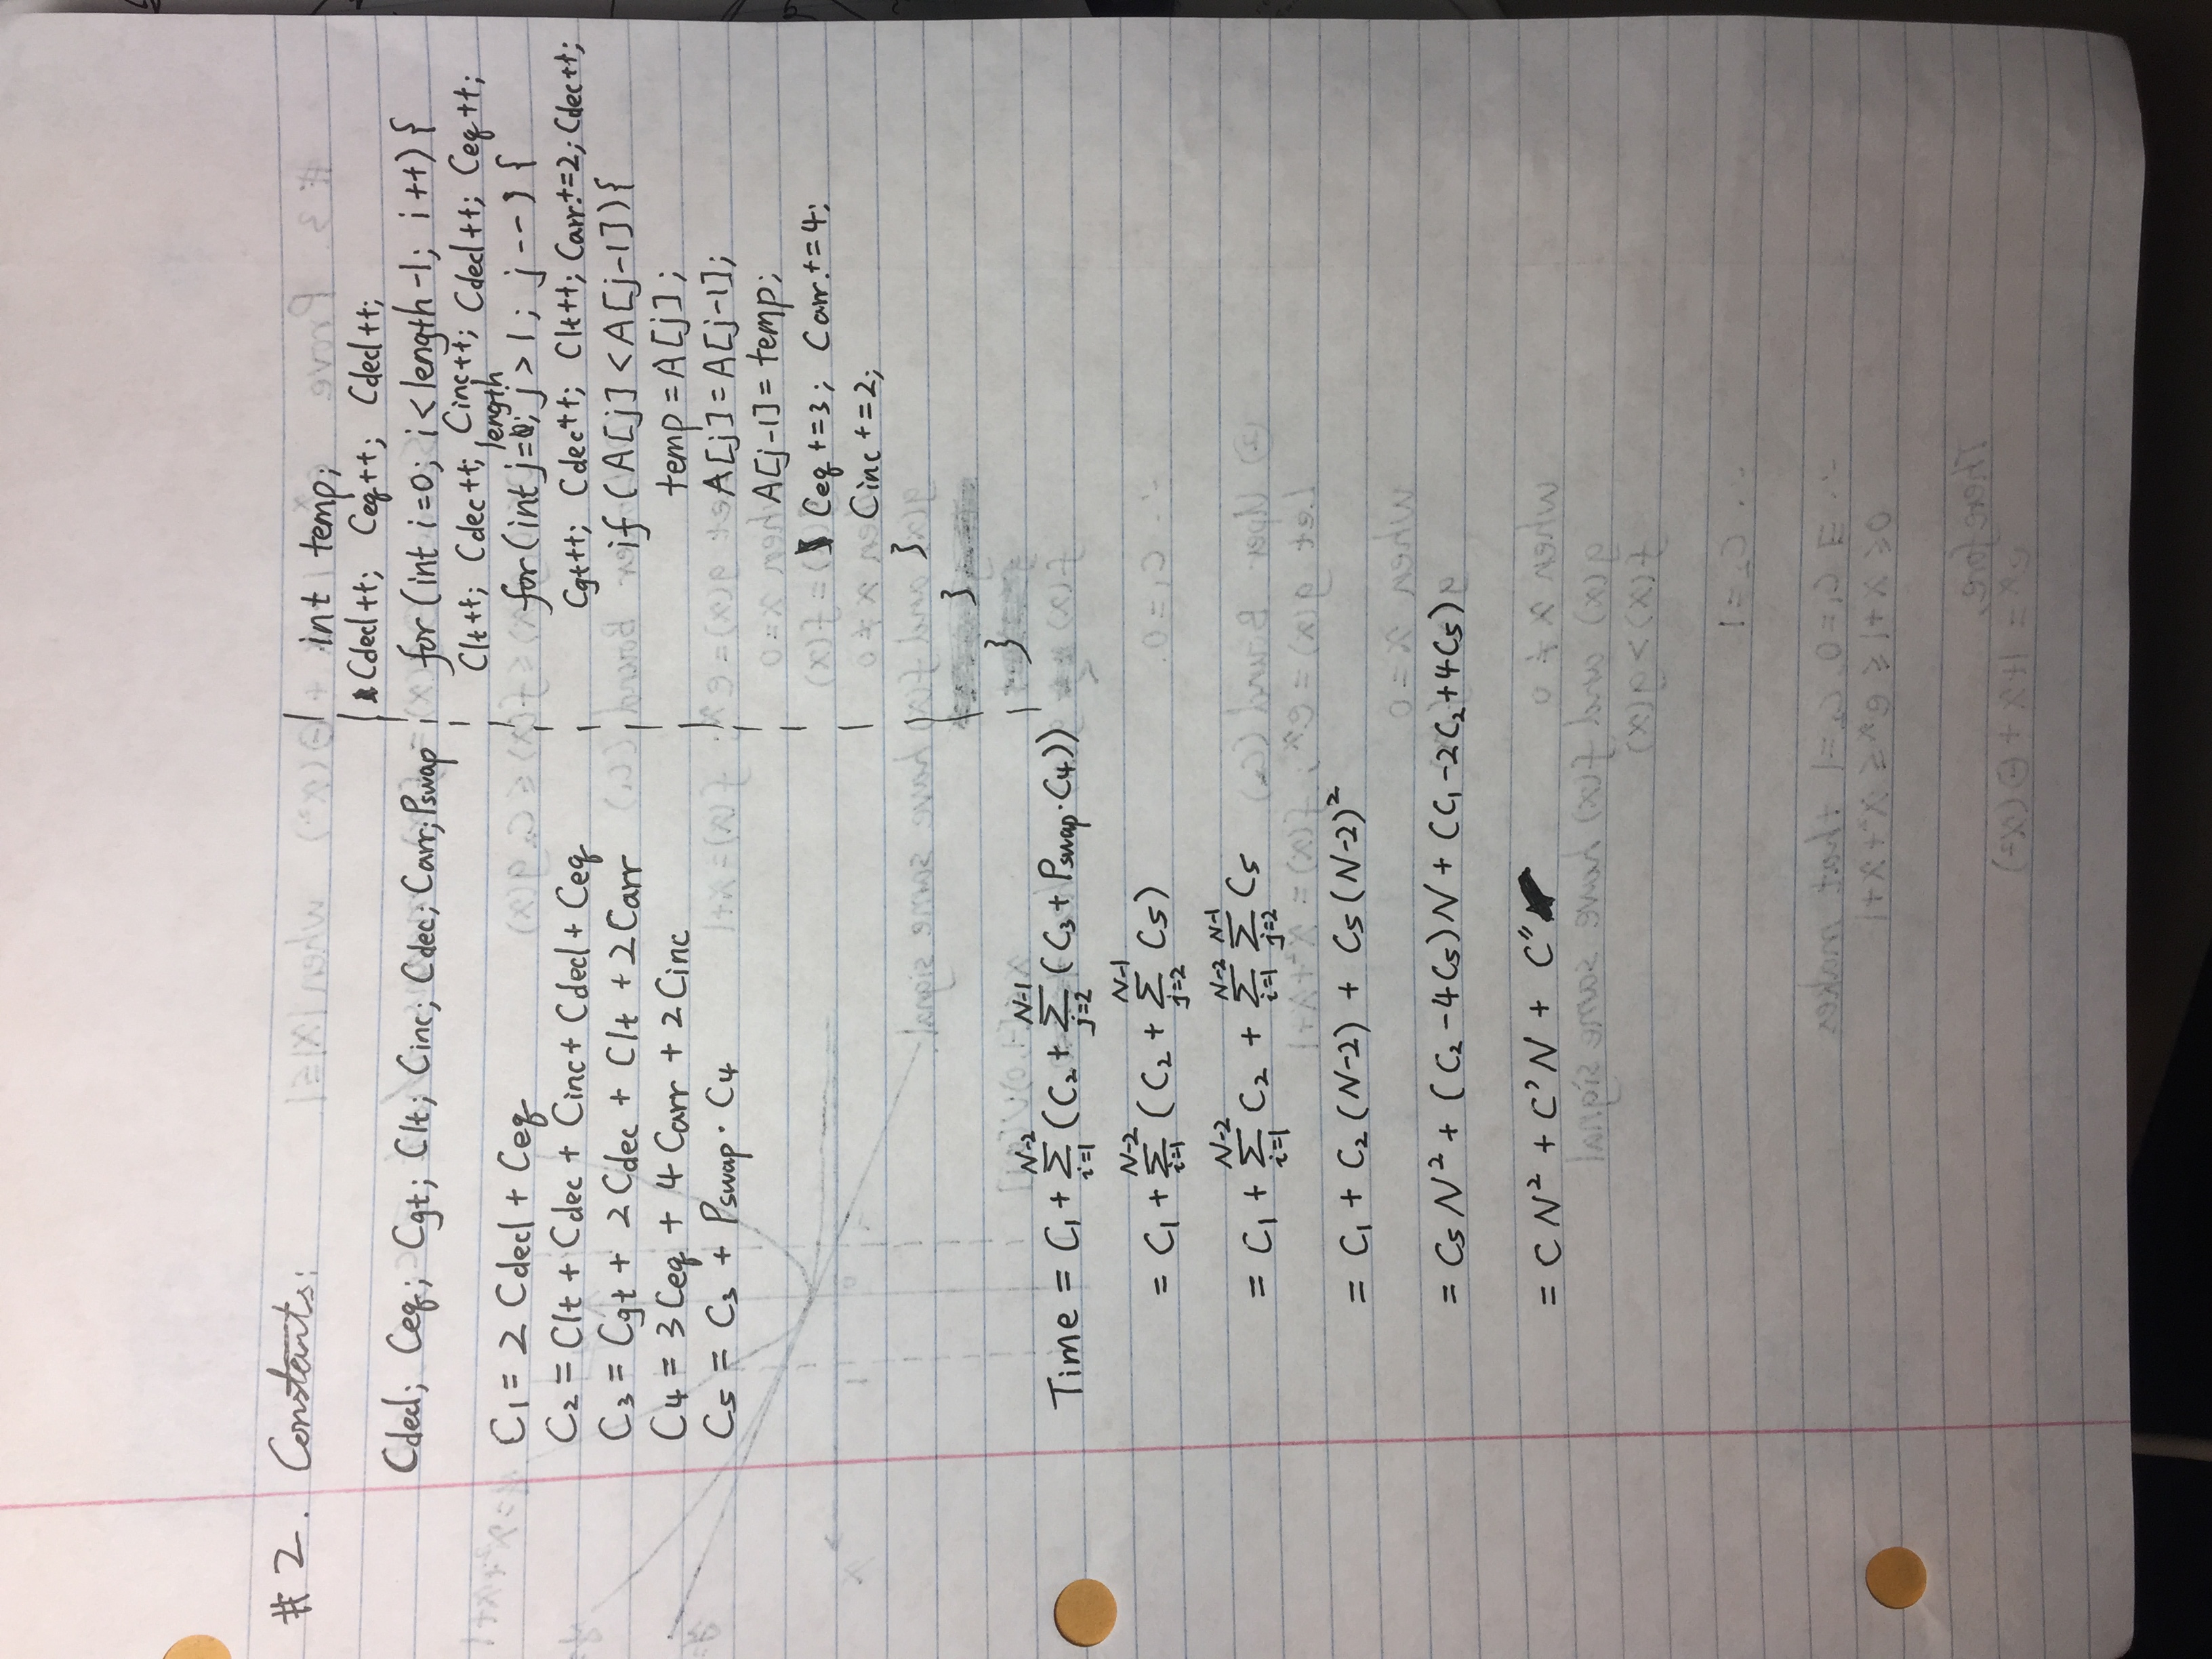 #2. Constants:
Cdecl; Ceq; Cgt; Clt; Cinc; Cdec; Carr; Pswap
C₁ = 2 Cdecl + Ceq
C₂ = Clt + Cdec + Cinc + Cdecl + Ceq
C₃ = Cgt + 2Cdec + Clt + 2Carr
C₄ = 3Ceq + 4Carr + 2Cinc
C₅ = C₃ + Pswap · C₄
int temp;
Cdecl++; Ceq++; Cdecl++;
for (int i=0; i<length-1; i++) {
Clt++; Cdec++; Cinc++; Cdecl++; Ceq++;
length
for (int j=0; j>1; j--) {
Cgt++; Cdec++; Clt++; Carr.+=2; Cdec++;
if (A[j] < A[j-1]){
temp = A[j];
A[j] = A[j-1];
A[j-1] = temp;
Ceq +=3; Carr.+=4;
Cinc +=2;
}
}
}
Time = C₁ + Σ_{i=1}^{N-2} (C₂ + Σ_{j=2}^{N-1} (C₃ + Pswap·C₄))
= C₁ + Σ_{i=1}^{N-2} (C₂ + Σ_{j=2}^{N-1} C₅)
= C₁ + Σ_{i=1}^{N-2} C₂ + Σ_{i=1}^{N-2} Σ_{j=2}^{N-1} C₅
= C₁ + C₂(N-2) + C₅(N-2)²
= C₅N² + (C₂-4C₅)N + (C₁-2C₂+4C₅)
= CN² + C'N + C"